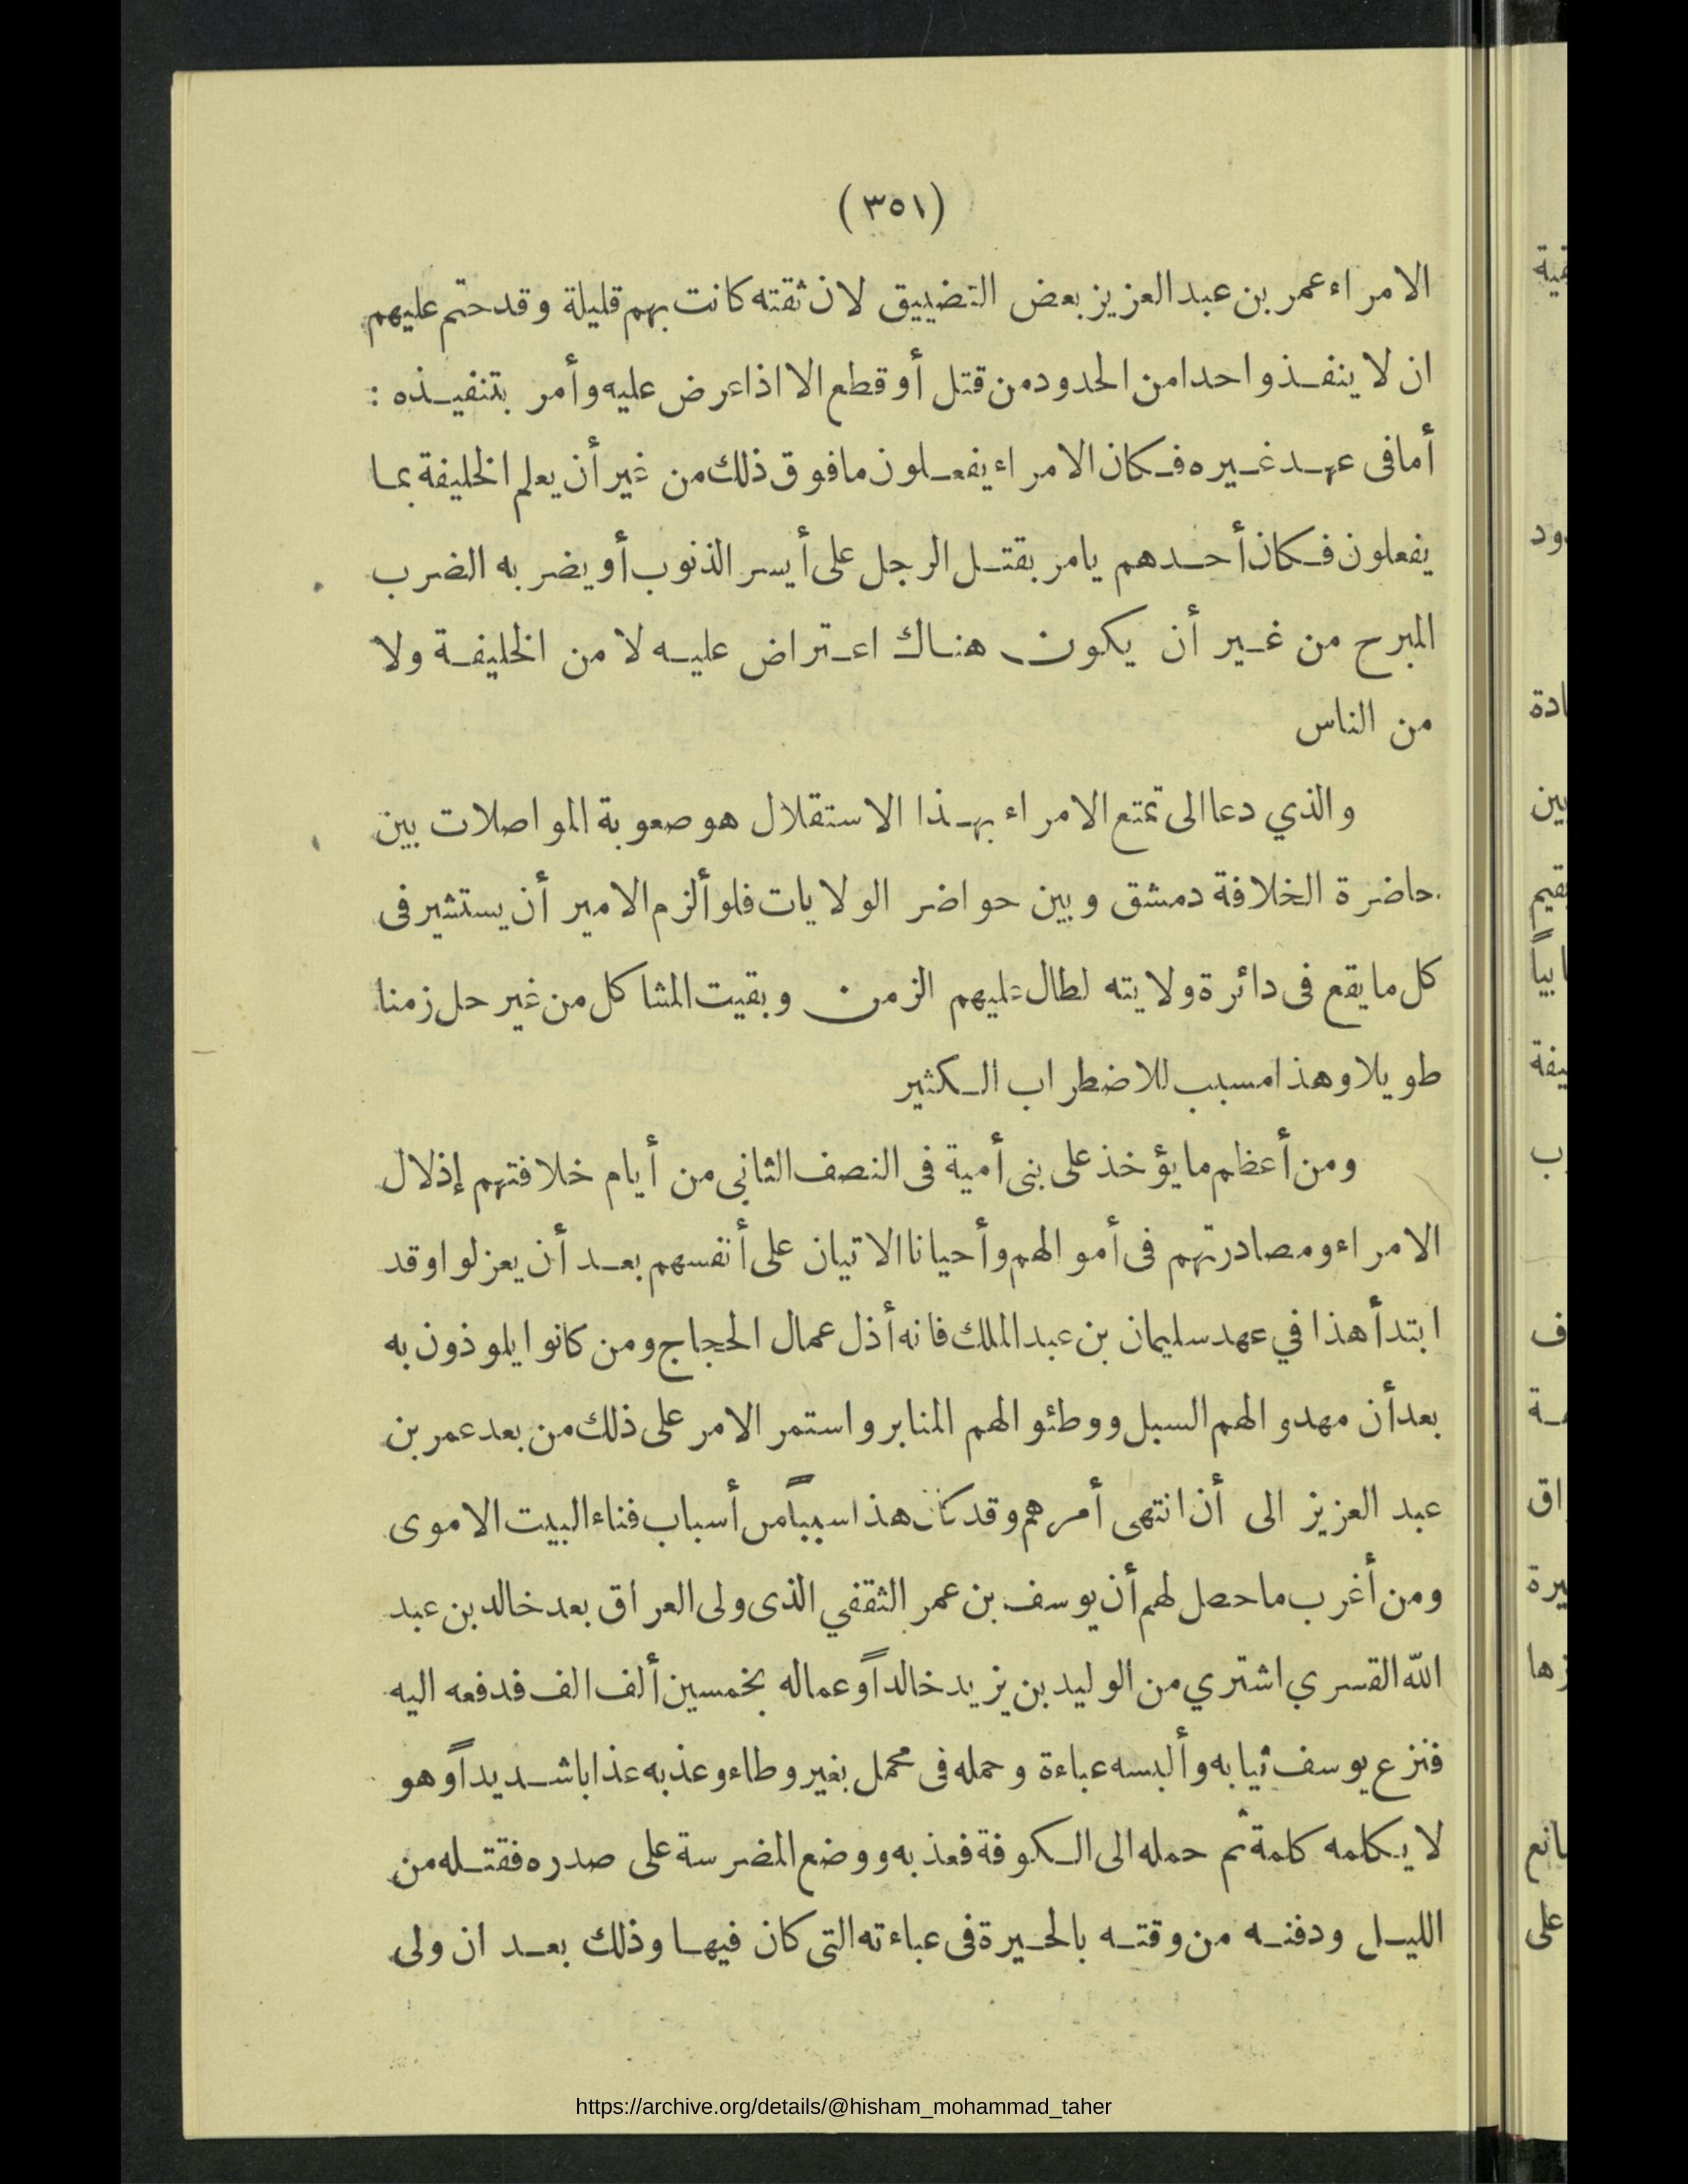 (٣٥١)
الامراء عمر بن عبد العزيز بعض التضييق لان ثقته كانت بهم قليلة وقد حتم عليهم
ان لا ينفذوا حدا من الحدود من قتل أو قطع الا اذا عرض عليه وأمر بتنفيذه :
أما فى عهد غيره فكان الامراء يفعلون ما فوق ذلك من غير أن يعلم الخليفة بما
يفعلون فكان أحدهم يامر بقتل الرجل على أيسر الذنوب أو يضربه الضرب
المبرح من غير أن يكون هناك اعتراض عليه لا من الخليفة ولا
من الناس
والذي دعا الى تمتع الامراء بهذا الاستقلال هو صعوبة المواصلات بين
حاضرة الخلافة دمشق وبين حواضر الولايات فلو ألزم الامير أن يستشير فى
كل ما يقع فى دائرة ولايته لطال عليهم الزمن وبقيت المشاكل من غير حل زمنا
طويلا وهذا مسبب للاضطراب الكثير
ومن أعظم ما يؤخذ على بنى أمية فى النصف الثانى من أيام خلافتهم إذلال
الامراء ومصادرتهم فى أموالهم وأحيانا الاتيان على أنفسهم بعد أن يعزلوا وقد
ابتدأ هذا في عهد سليمان بن عبد الملك فانه أذل عمال الحجاج ومن كانوا يلوذون به
بعد أن مهدوا لهم السبل ووطئوا لهم المنابر واستمر الامر على ذلك من بعد عمر بن
عبد العزيز الى أن انتهى أمرهم وقد كان هذا سبباً من أسباب فناء البيت الاموى
ومن أغرب ما حصل لهم أن يوسف بن عمر الثقفي الذى ولى العراق بعد خالد بن عبد
الله القسري اشتري من الوليد بن يزيد خالداً وعماله بخمسين ألف الف فدفعه اليه
فنزع يوسف ثيابه وألبسه عباءة وحمله فى محمل بغير وطاء وعذبه عذابا شديداً وهو
لا يكلمه كلمة ثم حمله الى الكوفة فعذبه ووضع المضرسة على صدره فقتله من
الليل ودفنه من وقته بالحيرة فى عباءته التى كان فيها وذلك بعد ان ولى
https://archive.org/details/@hisham_mohammad_taher